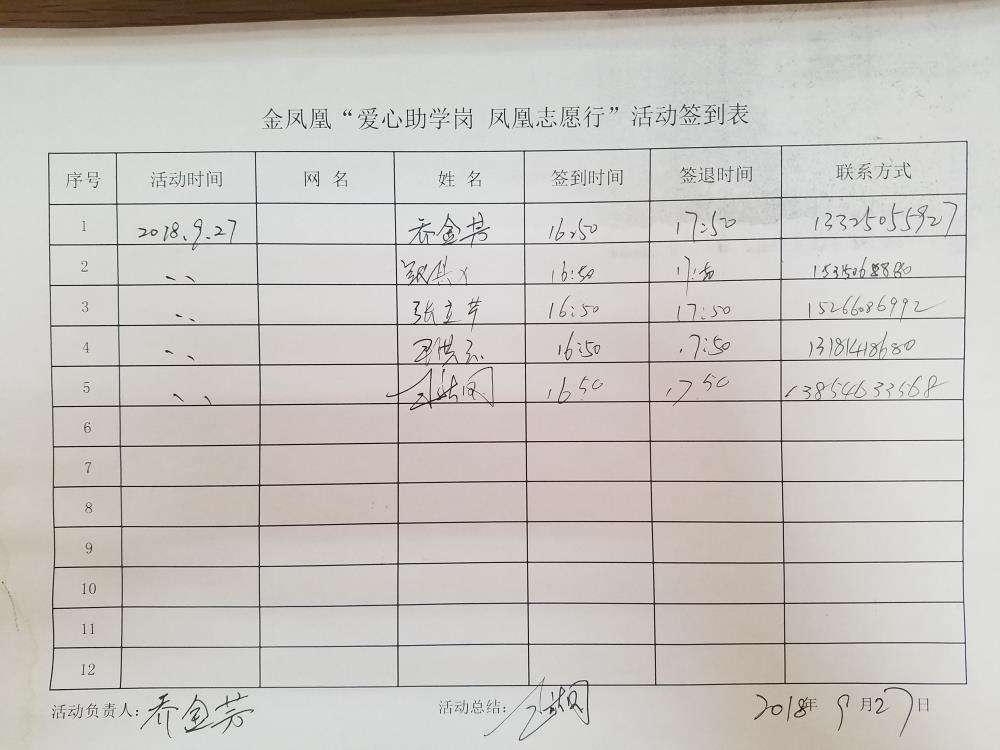 金凤凰“爱心助学岗 凤凰志愿行”活动签到表
序号 活动时间 网 名 姓 名 签到时间 签退时间 联系方式
1 2018.9.27 乔金芸 16:50 17:50 13325055927
2 、、 16:50 17:50
3 、、 张立芹 16:50 17:50 15266086992
4 、、 16:50 17:50 13181418680
5 、、 16:50 17:50 13854633568
6
7
8
9
10
11
12
活动负责人: 乔金芸 活动总结: 2018年 9月27日